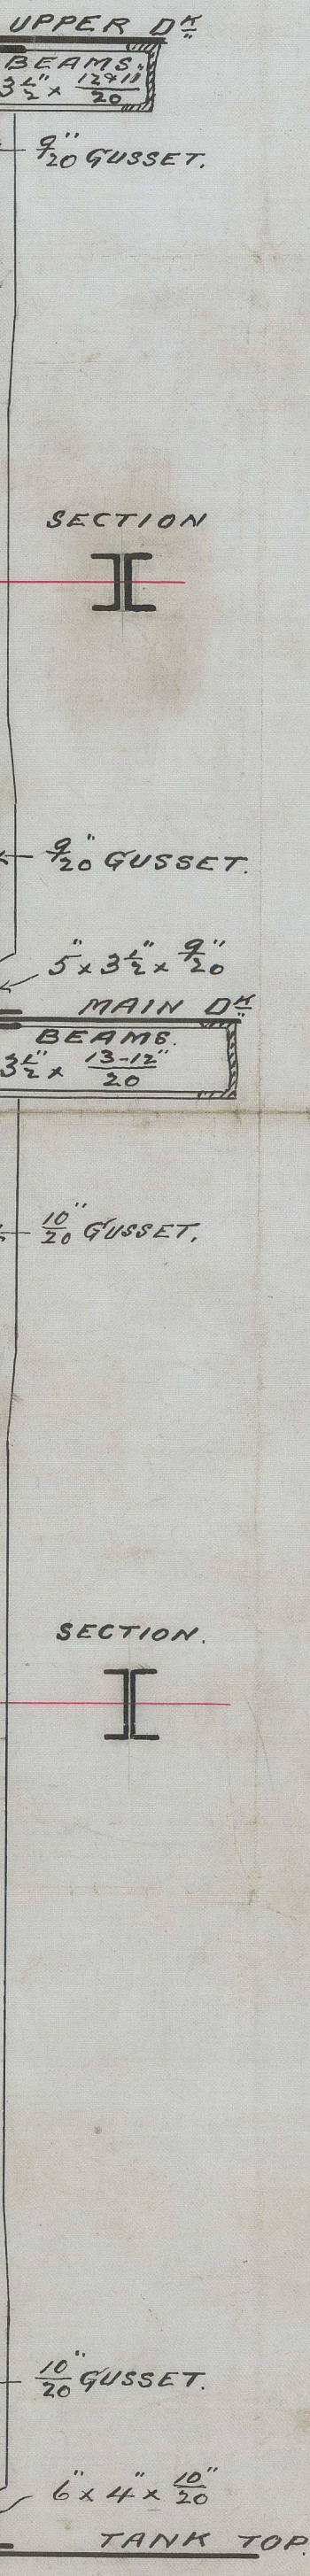 UPPER Dᴷ
BEAMS.
3½" x 12&11/20
9/20" GUSSET.
SECTION
9/20" GUSSET.
5" x 3½" x 9/20"
MAIN Dᴷ
BEAMS.
3½" x 13-12"/20
10/20" GUSSET.
SECTION.
10/20" GUSSET.
6" x 4" x 10/20"
TANK TOP.